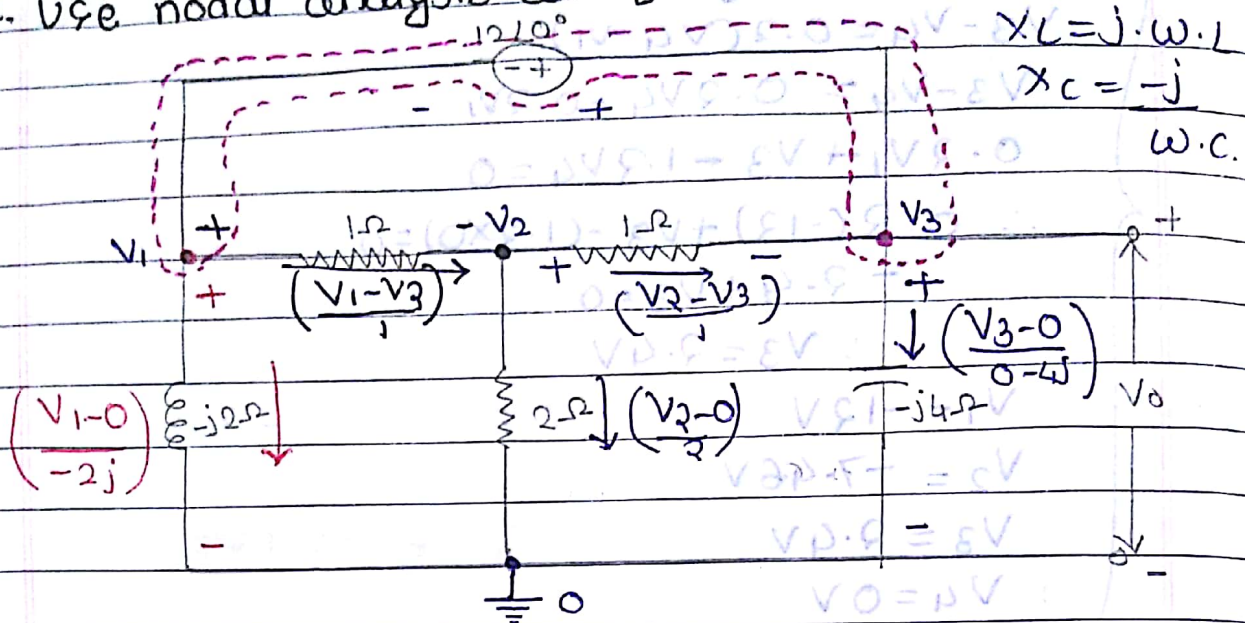 Use nodal
12∠0°
XL=j.ω.L
- +
Xc = -j
- +
ω.c.
V1 + 1Ω - V2 1Ω V3 +
+ -
+ (V1-V2)/1 (V2-V3)/1 +
(V3-0)/(0-4j)
(V1-0)/(-2j) -j2Ω 2Ω (V2-0)/2 -j4Ω Vo
- - -
0